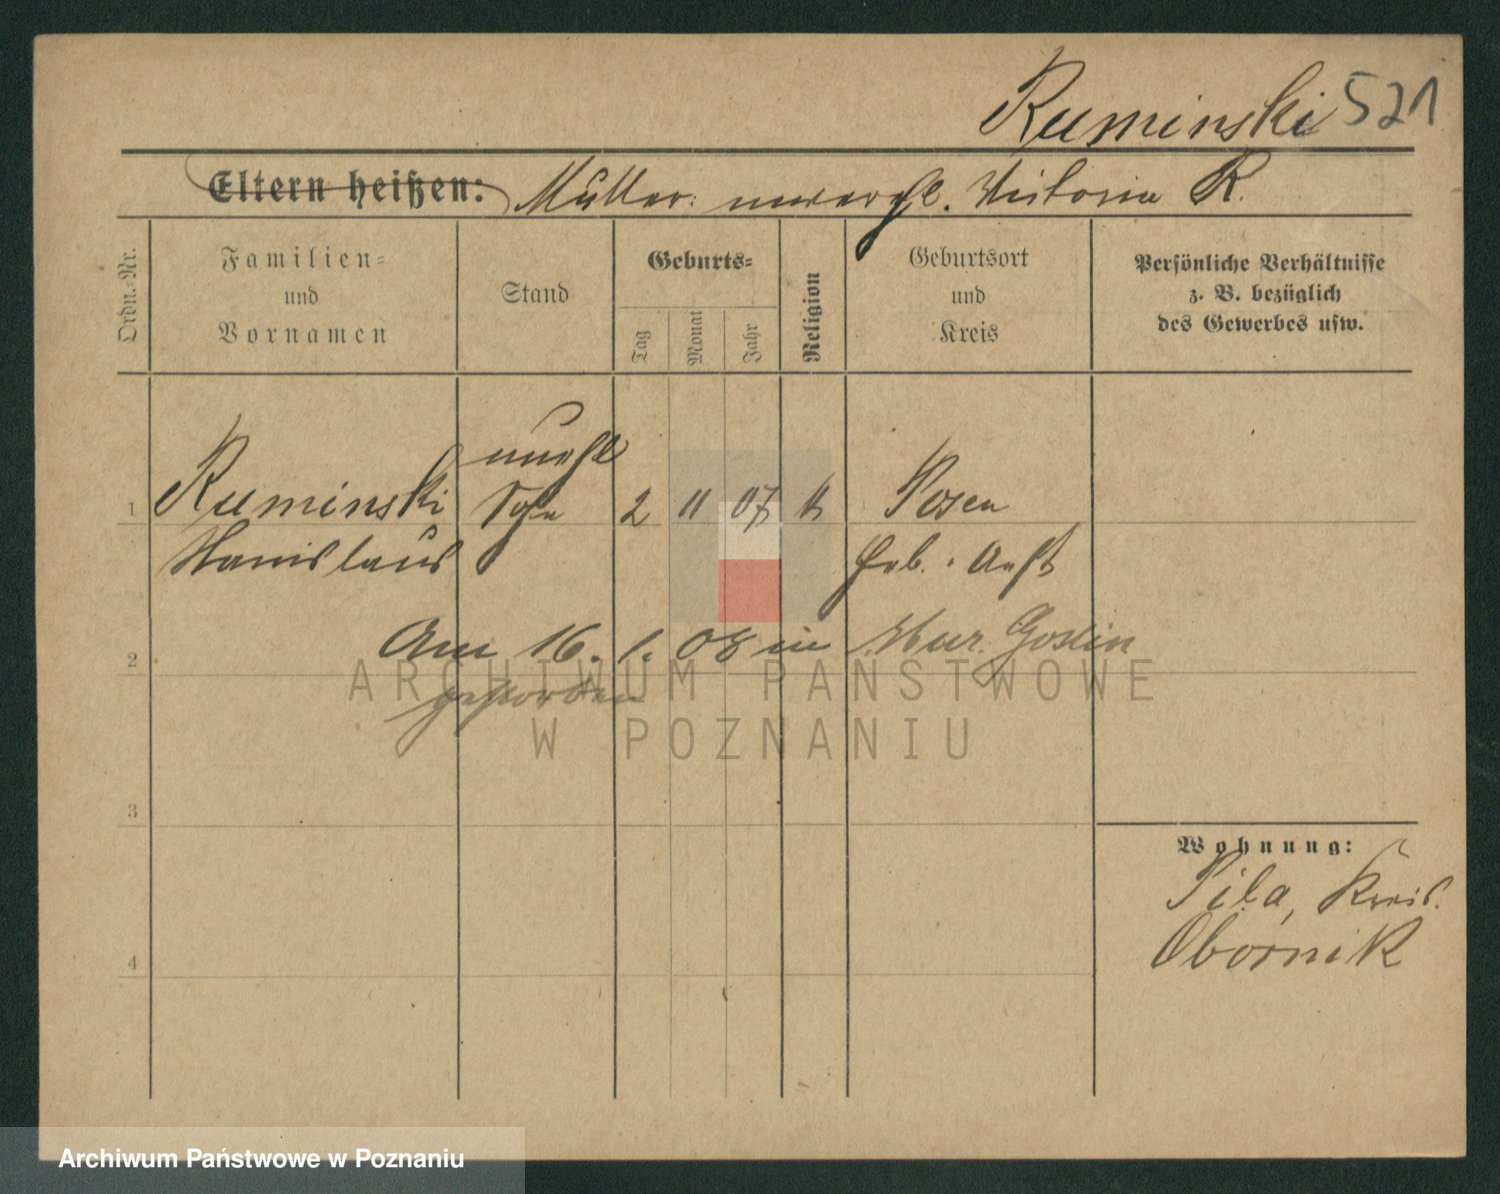 Ruminski 521
Eltern heißen: Mutter: unverehl. Victoria R.
Ordn.-Nr.
Familien-
und
Vornamen
Stand
Geburts-
Tag
Monat
Jahr
Religion
Geburtsort
und
Kreis
Persönliche Verhältnisse
z. B. bezüglich
des Gewerbes usw.
1 Ruminski unehl Sohn 2 11 07 k Posen
Stanislaus Geb. Anst
2 Am 16. 1. 08 in Mur. Goslin
gestorben
3
4
Wohnung:
Pila, Kreis.
Obornik
ARCHIWUM PAŃSTWOWE
W POZNANIU
Archiwum Państwowe w Poznaniu